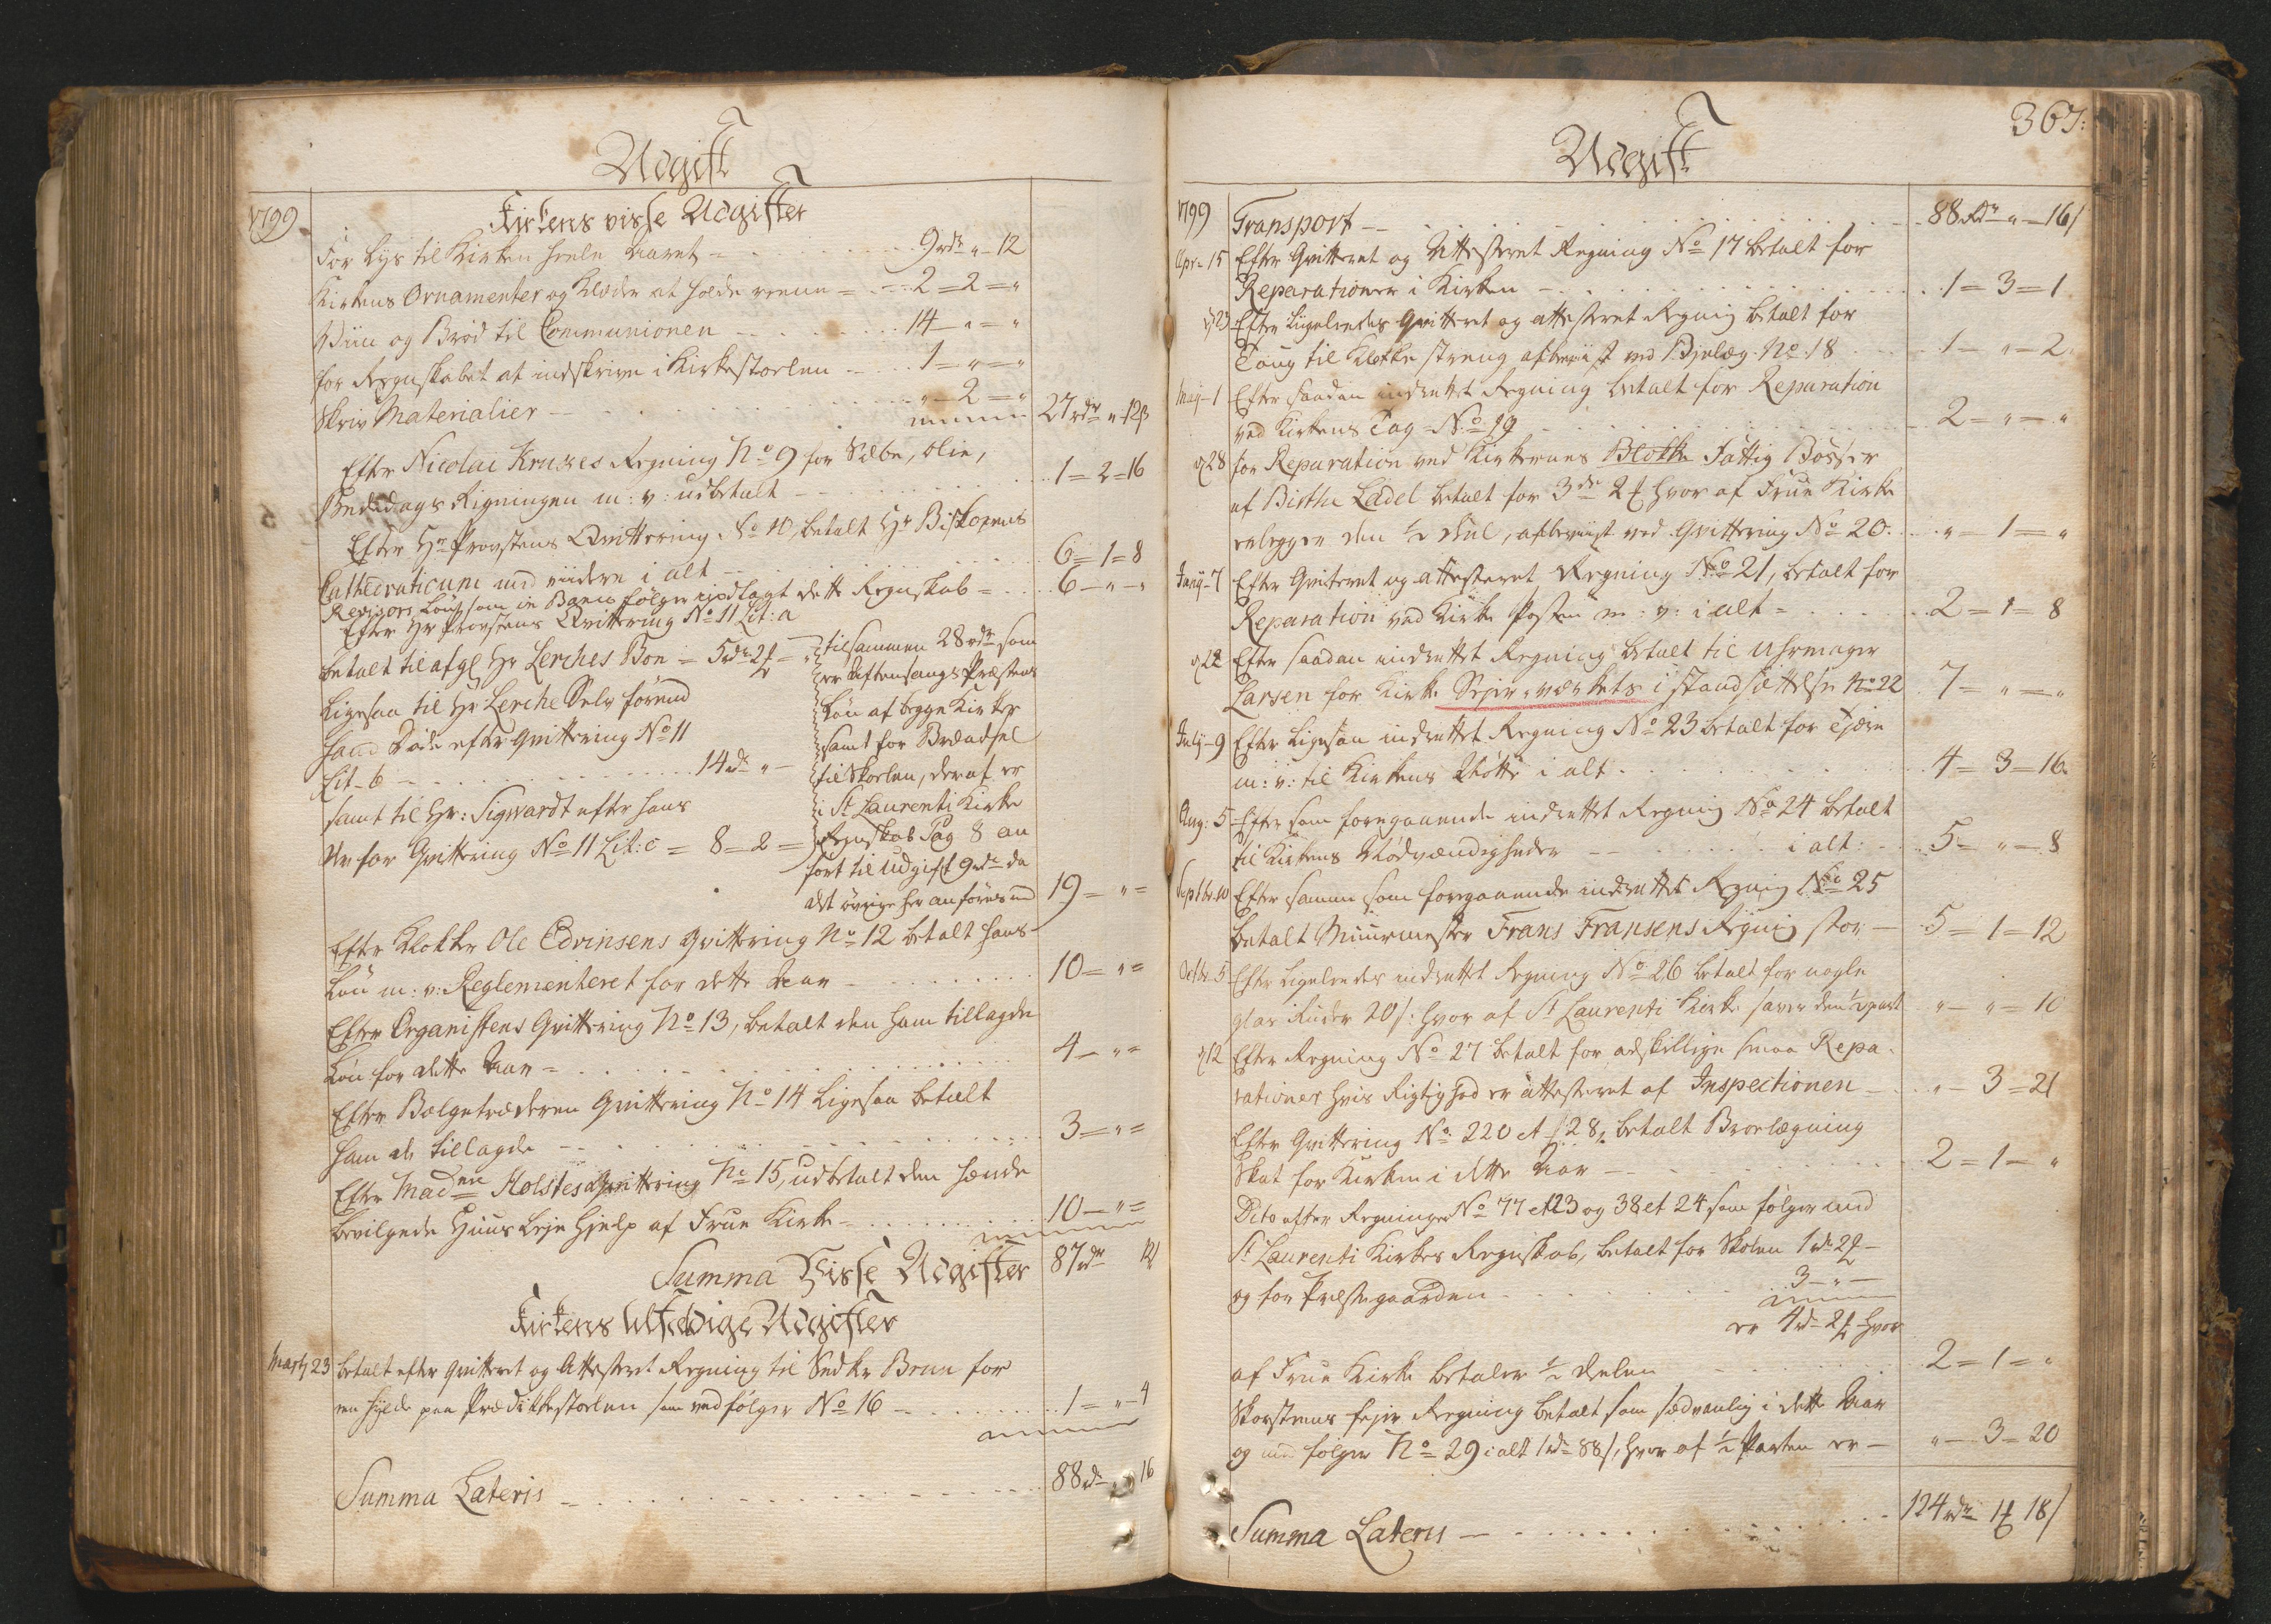 Udgift
1799. Kirkens visse Udgifter
For Lys til Kirken heele Aaret = 9 rdr " - 12
Kirkens Ornamenter og Klæder at holde reene = 2 = 2 = "
Viin og Brød til Communionen 14 - " = "
for Regnskabet at indskrive i Kirkestoelen 1 = " = "
Skriv Materialier " - 2 = " 27 rdr " 12 ß
Efter Nicolai Kruses Regning No 9 for Sæbe, olie,
Bededags Rigningen m: v: udbetalt 1 = 2 = 16
Efter Hr Provstens Qvittering No 10, betalt Hr Biskopens
Cathedraticum med viidere i alt 6 = 1 = 8
Revisors Løn som in Banco følger indlagt dette Regnskab = 6 - " - "
Efter Hr Provstens Qvittering No 11 Lit: a
betalt til afgl Hr Lerches Boe = 5 rdr 2 ₰ = " tilsammen 28 rdr som
Ligesaa til Hr Lerche Selv førend er Aftensangs Præstens
hand Døde efter Qvittering No 11 Løn af begge Kirker
Lit. b 14 rdr " - samt for Brændsel
samt til Hr: Sigvardt efter hans til Skoelen, deraf er
i St Laurenti Kirke
Qvittering No 11 Lit: c = 8 = 2 = Regnskab Pag 8 an
ført til Udgift 9 rdr da
det øvrige her anføres med 19 = " =
Efter Klokker Ole Edvinsens Qvittering No 12 betalt hans
Løn m: v: Reglementeret for dette Aar 10 = " =
Efter Organistens Qvittering No 13, betalt den ham tillagde
Løn for dette Aar = 4 - " =
Efter Bælgetræderen Qvittering No 14 Ligesaa betalt
ham de tillagde 3 = " =
Efter Maden Holstes Qvittering No 15, udbetalt den hende
bevilgede Huus Leje Hjelp af Frue Kirke 10 - " =
Summa Visse Udgifter 87 rdr 12 ß
Kirkens Uvisse Udgifter
Marty 23 betalt efter qvitteret og Attesteret Regning til Snedker Brun for
en Hylde paa Prædikkestoelen som vedfølger No 16 1 = " - 4
Summa Lateris 88 rdr " 16
Udgift 367.
1799 Transport 88 Rdr " - 16 ß
Apr. 15 Efter Qvitteret og Attesteret Regning No 17 betalt for
Reparationer i Kirken 1 = 3 = 1
d 23 Efter Ligeleedes Qvitteret og attesteret Regning betalt for
Toug til Klokke streng afbeviist ved Bjelag No. 18 1 - " - 2
Maj = 1 Efter saadan indrettet Regning betalt for Reparation
ved Kirkens Tag = No 19 2 = " = "
d 28 for Reparation ved Kirkernes Blokke Fattig Bøsser
af Birthe Ladel betalt for 3 de 2 ₰ hvor af Frue Kirke
erlegger den ½ Deel, afbeviist ved Qvittering No 20. " = 1 = "
Juny 7 Efter Qvitteret og attesteret Regning No 21, betalt for
Reparation ved Kirke Porten m: v: i alt = 2 = 1 = 8
d 22 Efter saadan indrettet Regning betalt til Uhrmager
Larsen for Kirke Sejer-værkets i standsættelse No 22 7 = " = "
July - 9 Efter Ligesaa indrettet Regning No 23 betalt for Tjære
m: v: til Kirkens Nøtte i alt 4 = 3 = 16.
Aug: 5 Efter som foregaaende indrettet Regning No 24 betalt
til Kirkens Nødvændigheder i alt 5 = " = 8
Septbr. 10 Efter samme som foregaaende indrettet Regning No 25
betalt Muurmester Frans Fransens Regning stor 5 = 1 = 12
Octbr. 5 Efter Ligeleedes indrettet Regning No 26 betalt for nogle
glas Ruder 20 ß: hvor af St Laurenti Kirke svarer den ½ part " - " = 10
d 12 Efter Regning No 27 betalt for adskillige smaa Repa-
rationer hvis Rigtighed er attesteret af Inspectionen " - 3 = 21
Efter Qvittering No 220 et 28, betalt Broelægning
Skat for Kirken i dette Aar 2 = 1 - "
Dito efter Regninger No 77 et 123 og 38 et 24 som følger med
St Laurenti Kirkes Regnskab, betalt for Skolen 1 rdr 2 ₰ -
og for Præstegaarden 3 - " -
er 4 rdr 2 ₰ hvor
af Frue Kirke betaler ½ Delen 2 = 1 = "
Skorsteens fejer Regning betalt som sædvanlig i dette Aar
og med følger No 29 i alt 1 rdr 88 ß, hvor af ½ Parten er " - 3 = 20
Summa Lateris 124 rdr 1 ₰ 18 ß